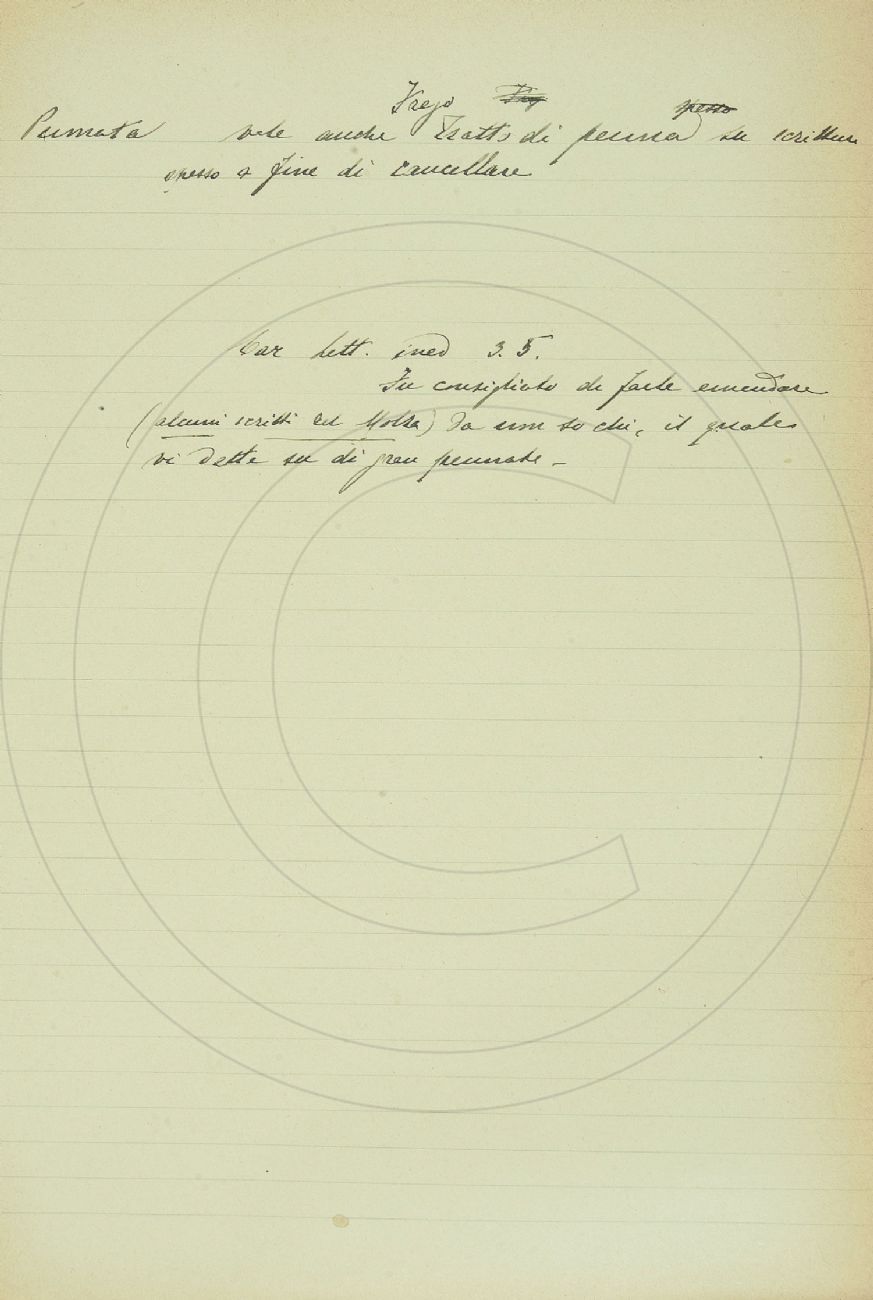 Frego spesso
Pennata vale anche Tratto di penna su scrittura
spesso a fine di cancellare
Car lett. ined 3. 5.
Fu consigliato di farle emendare
(alcuni scritti del Molza) da non so chi, il quale
vi dette su di gran pennate -